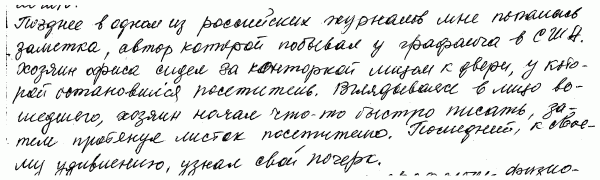 Позднее в одном из российских журналов мне попалась
заметка, автор которой побывал у графолога в США.
Хозяин офиса сидел за конторкой лицом к двери, у кото-
рой остановился посетитель. Вглядываясь в лицо во-
шедшего, хозяин начал что-то быстро писать, за-
тем протянул листок посетителю. Последний, к свое-
му удивлению, узнал свой почерк.
физио-